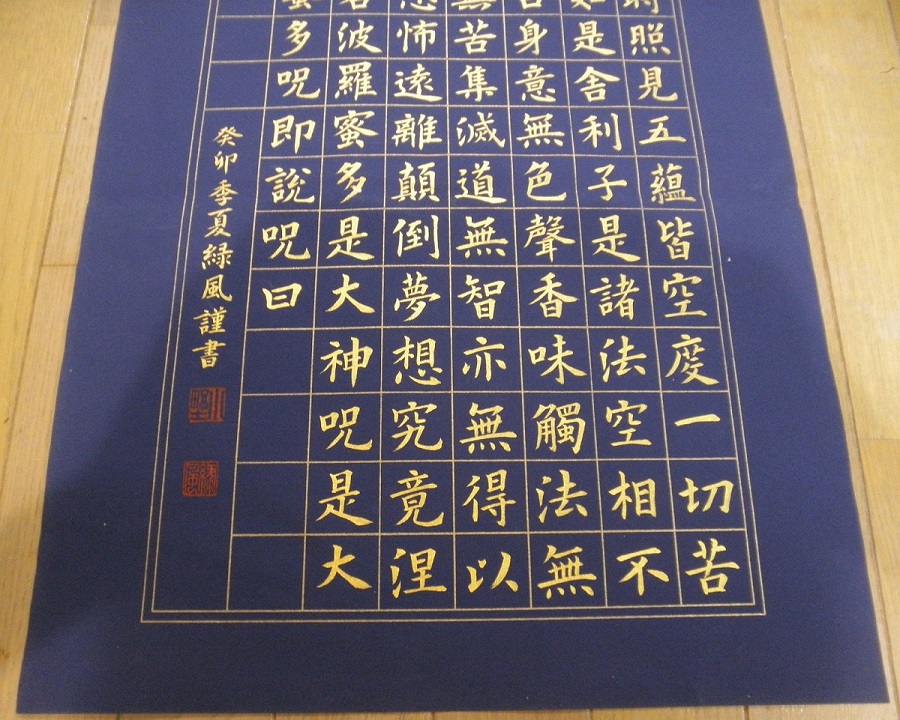 時照見五蘊皆空度一切苦
如是舍利子是諸法空相不
身意無色聲香味觸法無
無苦集滅道無智亦無得以
怖遠離顛倒夢想究竟涅
若波羅蜜多是大神呪是大
蜜多呪即說呪曰
癸卯季夏緑風謹書